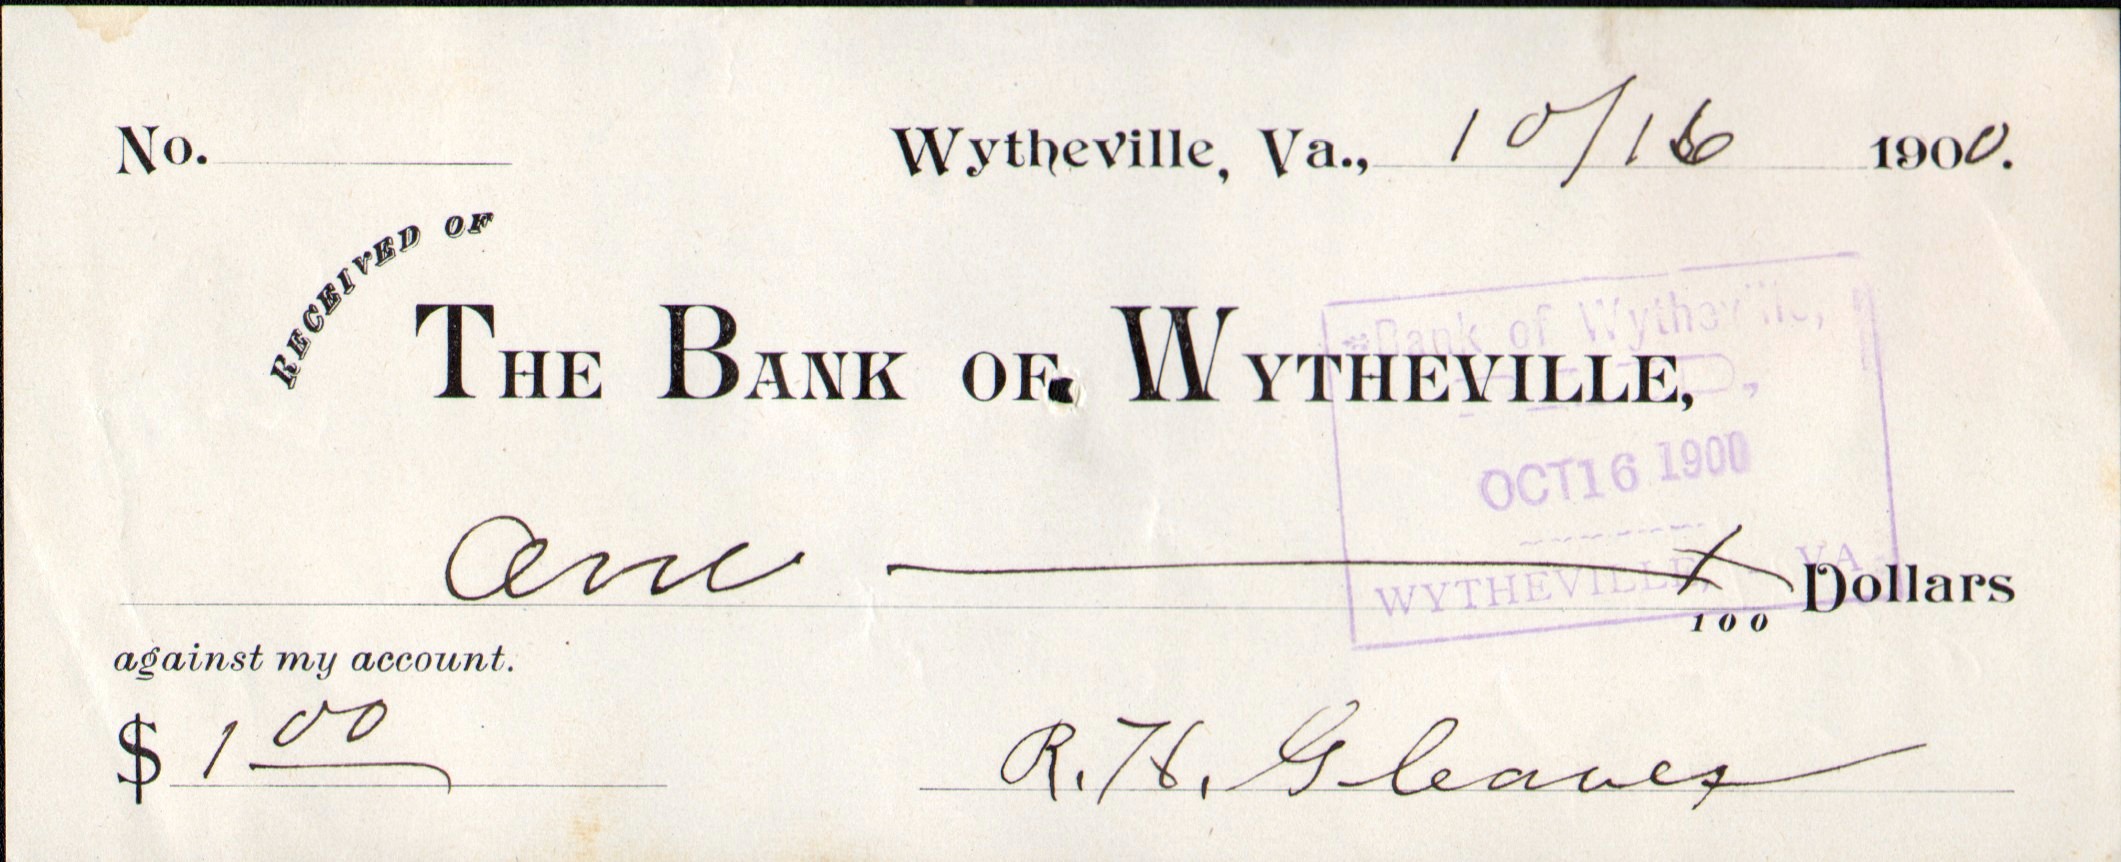 No. Wytheville, Va., 10/16 1900.
RECEIVED OF
THE BANK OF WYTHEVILLE,
Bank of Wytheville,
PAID,
OCT 16 1900
WYTHEVILLE, VA.
One x/100 Dollars
against my account.
$ 1 00
R. H. Gleaves